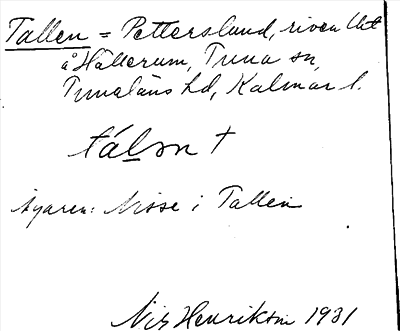 Tallen = Petterslund, riven lht
å Hällerum, Tuna sn,
Tunaläns hd, Kalmar l.
tálsn †
Ägaren: Nisse i Tallen
Nils Henrikson 1931